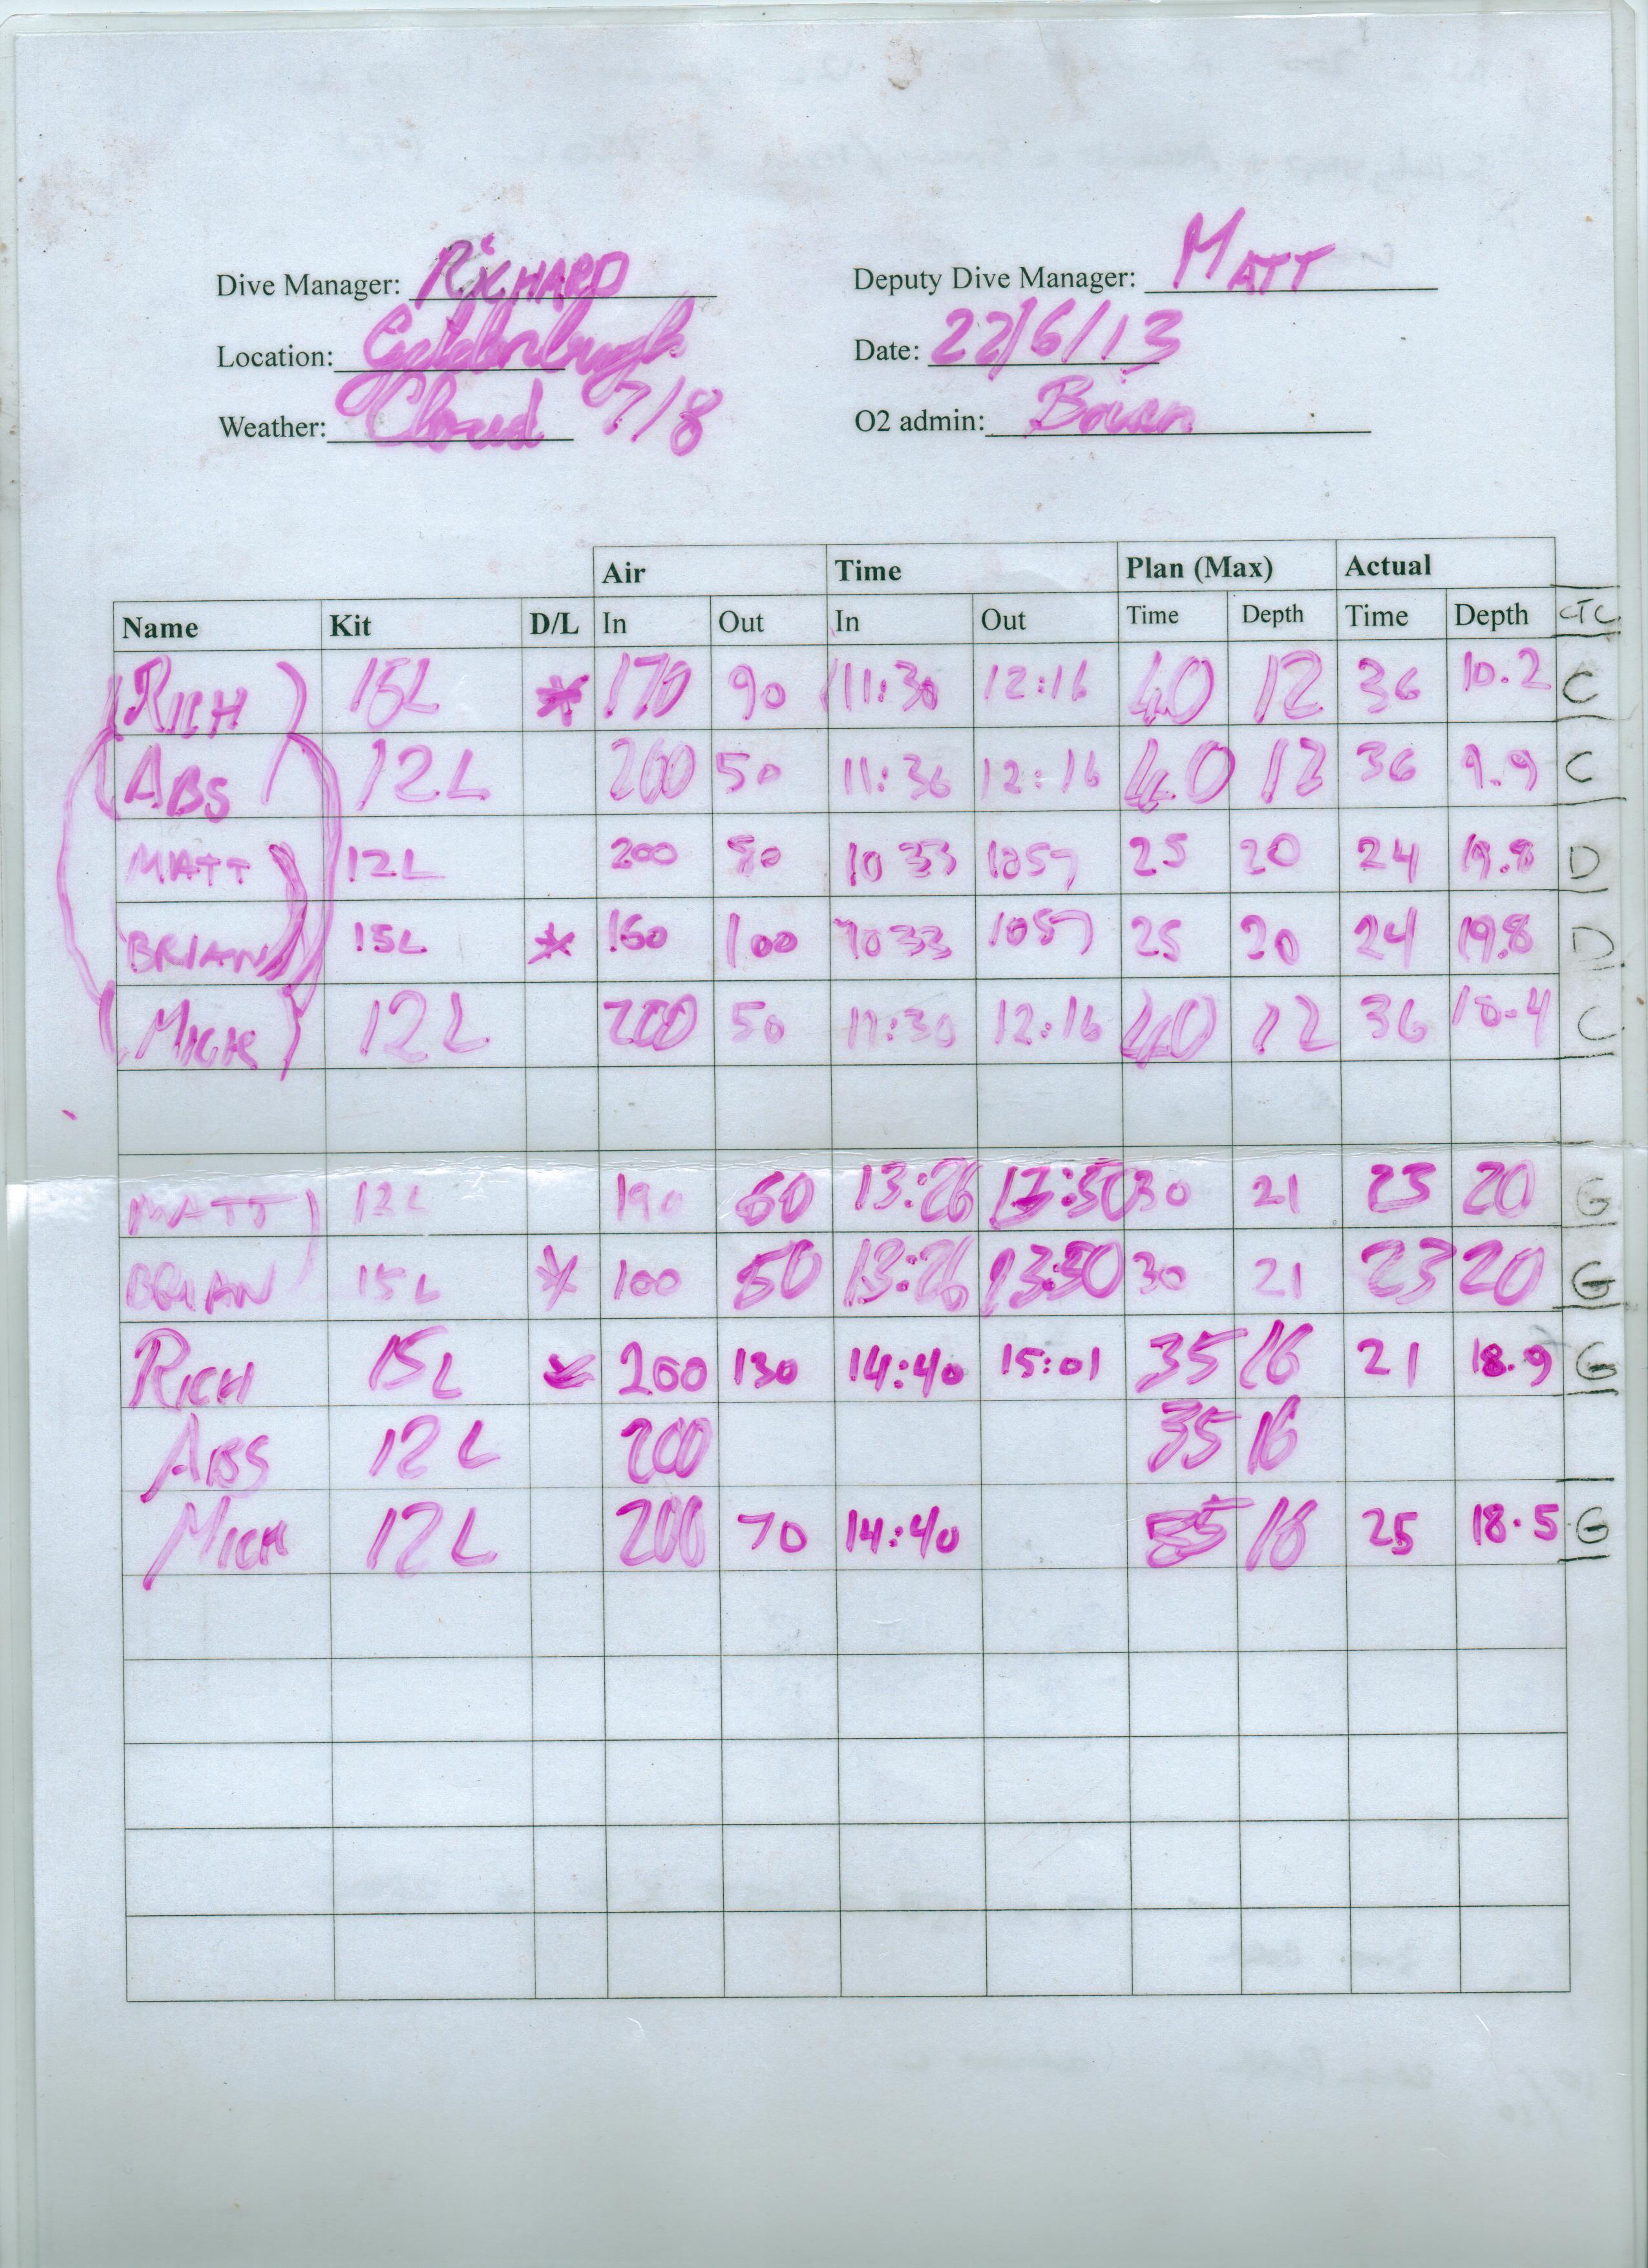 Dive Manager: RICHARD Deputy Dive Manager: MATT
Location: Date: 22/6/13
Weather: Cloud 7/8 O2 admin: Brian
Air Time Plan (Max) Actual
Name Kit D/L In Out In Out Time Depth Time Depth CTC
RICH 15L * 170 90 11:30 12:16 40 12 36 10.2 C
ABS 12L 200 50 11:36 12:16 40 12 36 9.9 C
MATT 12L 200 80 1033 1057 25 20 24 19.8 D
BRIAN 15L * 160 100 1033 1057 25 20 24 19.8 D
MICH 12L 200 50 11:30 12:16 40 12 36 10.4 C
MATT 12L 190 60 13:26 13:50 30 21 23 20 G
BRIAN 15L * 100 50 13:26 13:50 30 21 23 20 G
RICH 15L * 200 130 14:40 15:01 35 16 21 18.9 G
ABS 12L 200 35 16
MICH 12L 200 70 14:40 35 16 25 18.5 G